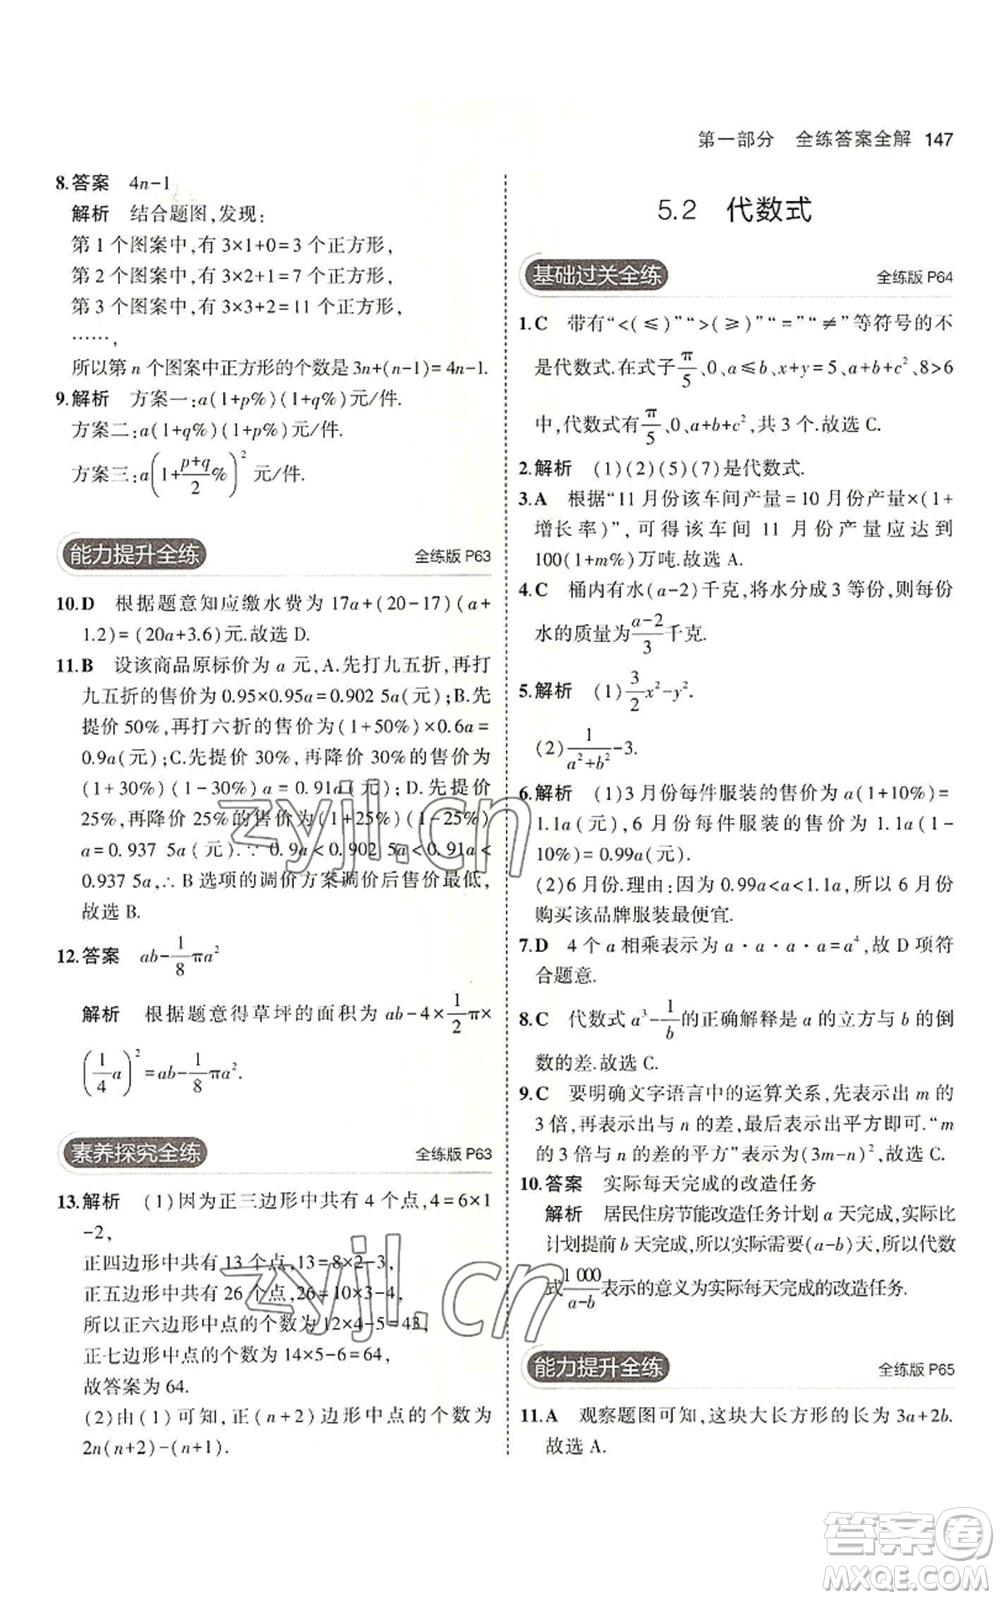 第一部分 全练答案全解 147
8.答案 4n-1
解析 结合题图,发现:
第 1 个图案中,有 3×1+0=3 个正方形,
第 2 个图案中,有 3×2+1=7 个正方形,
第 3 个图案中,有 3×3+2=11 个正方形,
……,
所以第 n 个图案中正方形的个数是 3n+(n-1)=4n-1.
9.解析 方案一:a(1+p%)(1+q%)元/件.
方案二:a(1+q%)(1+p%)元/件.
方案三:a(1+\frac{p+q}{2}%)^2 元/件.
能力提升全练 全练版 P63
10.D 根据题意知应缴水费为 17a+(20-17)(a+
1.2)=(20a+3.6)元.故选 D.
11.B 设该商品原标价为 a 元,A.先打九五折,再打
九五折的售价为 0.95×0.95a=0.902 5a(元);B.先
提价 50%,再打六折的售价为(1+50%)×0.6a=
0.9a(元);C.先提价 30%,再降价 30%的售价为
(1+30%)(1-30%)a=0.91a(元);D.先提价
25%,再降价 25%的售价为(1+25%)(1-25%)
a=0.937 5a(元).∵0.9a<0.902 5a<0.91a<
0.937 5a,∴B 选项的调价方案调价后售价最低,
故选 B.
12.答案 ab-\frac{1}{8}πa²
解析 根据题意得草坪的面积为 ab-4×\frac{1}{2}π×
(\frac{1}{4}a)^2=ab-\frac{1}{8}πa².
素养探究全练 全练版 P63
13.解析 (1)因为正三边形中共有 4 个点,4=6×1
-2,
正四边形中共有 13 个点,13=8×2-3,
正五边形中共有 26 个点,26=10×3-4,
所以正六边形中点的个数为 12×4-5=43,
正七边形中点的个数为 14×5-6=64.
故答案为 64.
(2)由(1)可知,正(n+2)边形中点的个数为
2n(n+1)-(n+1).
5.2 代数式
基础过关全练 全练版 P64
1.C 带有“<(≤)”“>(≥)”“=”“≠”等符号的不
是代数式.在式子\frac{π}{5}、0、a≤b、x+y=5、a+b+c²、8>6
中,代数式有\frac{π}{5}、0、a+b+c²,共 3 个.故选 C.
2.解析 (1)(2)(5)(7)是代数式.
3.A 根据“11 月份该车间产量=10 月份产量×(1+
增长率)”,可得该车间 11 月份产量应达到
100(1+m%)万吨.故选 A.
4.C 桶内有水(a-2)千克,将水分成 3 等份,则每份
水的质量为\frac{a-2}{3}千克.
5.解析 (1)\frac{3}{2}x²-y².
(2)\frac{1}{a²+b²}-3.
6.解析 (1)3 月份每件服装的售价为 a(1+10%)=
1.1a(元),6 月份每件服装的售价为 1.1a(1-
10%)=0.99a(元).
(2)6 月份.理由:因为 0.99a<a<1.1a,所以 6 月份
购买该品牌服装最便宜.
7.D 4 个 a 相乘表示为 a·a·a·a=a⁴,故 D 项符
合题意.
8.C 代数式 a³-\frac{1}{b}的正确解释是 a 的立方与 b 的倒
数的差.故选 C.
9.C 要明确文字语言中的运算关系,先表示出 m 的
3 倍,再表示出与 n 的差,最后表示出平方即可.“m
的 3 倍与 n 的差的平方”表示为(3m-n)².故选 C.
10.答案 实际每天完成的改造任务
解析 居民住房节能改造任务计划 a 天完成,实际比
计划提前 b 天完成,所以实际需要(a-b)天,所以代数
式\frac{1 000}{a-b}表示的意义为实际每天完成的改造任务.
能力提升全练 全练版 P65
11.A 观察题图可知,这块大长方形的长为 3a+2b.
故选 A.
zyjl.cn
zyjl.cn
答案圈
MXQE.COM